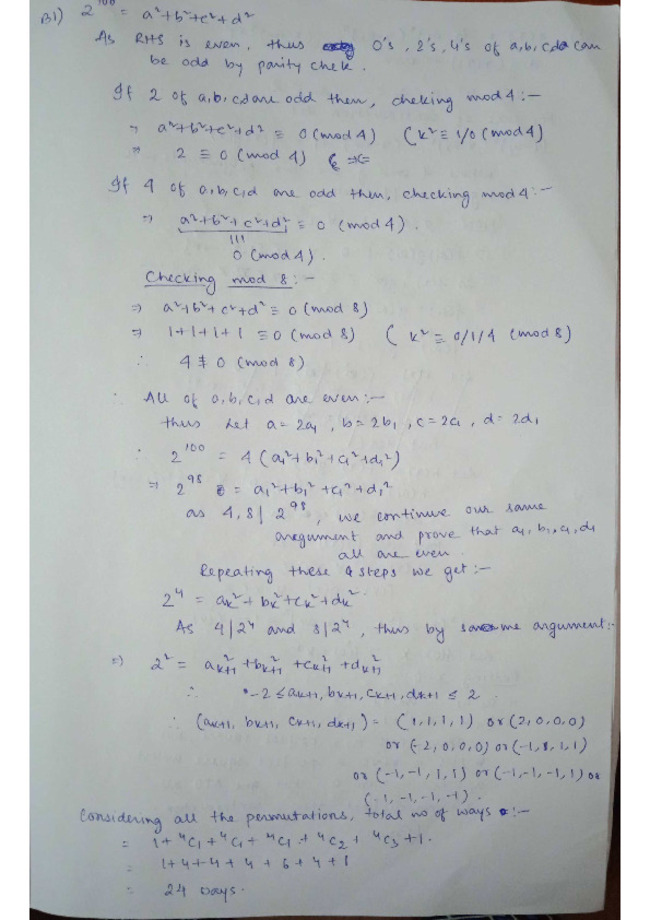 B1) 2^100 = a²+b²+c²+d²
As RHS is even, thus 0's, 2's, 4's of a,b,c,d can
be odd by parity chek.
If 2 of a,b,c,d are odd then, cheking mod 4 :-
⇒ a²+b²+c²+d² ≡ 0 (mod 4) (k² ≡ 1/0 (mod 4)
⇒ 2 ≡ 0 (mod 4) ⇒⇐
If 4 of a,b,c,d are odd then, checking mod 4 :-
⇒ a²+b²+c²+d² ≡ 0 (mod 4).
|||
0 (mod 4).
Checking mod 8 :-
⇒ a²+b²+c²+d² ≡ 0 (mod 8)
⇒ 1+1+1+1 ≡ 0 (mod 8) ( k² ≡ 0/1/4 (mod 8)
∴ 4 ≢ 0 (mod 8)
∴ All of a,b,c,d are even :-
thus Let a = 2a₁, b = 2b₁, c = 2c₁, d = 2d₁
∴ 2^100 = 4 (a₁²+b₁²+c₁²+d₁²)
⇒ 2^98 = a₁²+b₁²+c₁²+d₁²
as 4,8 | 2^98, we continue our same
aregument and prove that a₁, b₁, c₁, d₁
all are even.
Repeating these steps we get :-
2⁴ = aₖ²+bₖ²+cₖ²+dₖ²
As 4|2⁴ and 8|2⁴, thus by same argument :-
⇒ 2² = aₖ₊₁²+bₖ₊₁²+cₖ₊₁²+dₖ₊₁²
∴ -2 ≤ aₖ₊₁, bₖ₊₁, cₖ₊₁, dₖ₊₁ ≤ 2
∴ (aₖ₊₁, bₖ₊₁, cₖ₊₁, dₖ₊₁) = (1,1,1,1) or (2,0,0,0)
or (-2,0,0,0) or (-1,1,1,1)
or (-1,-1,1,1) or (-1,-1,-1,1) or
(-1,-1,-1,-1).
Considering all the permutations, total no of ways :-
= 1 + ⁴C₁ + ⁴C₁ + ⁴C₁ + ⁴C₂ + ⁴C₃ + 1.
= 1+4+4+4+6+4+1
= 24 ways.